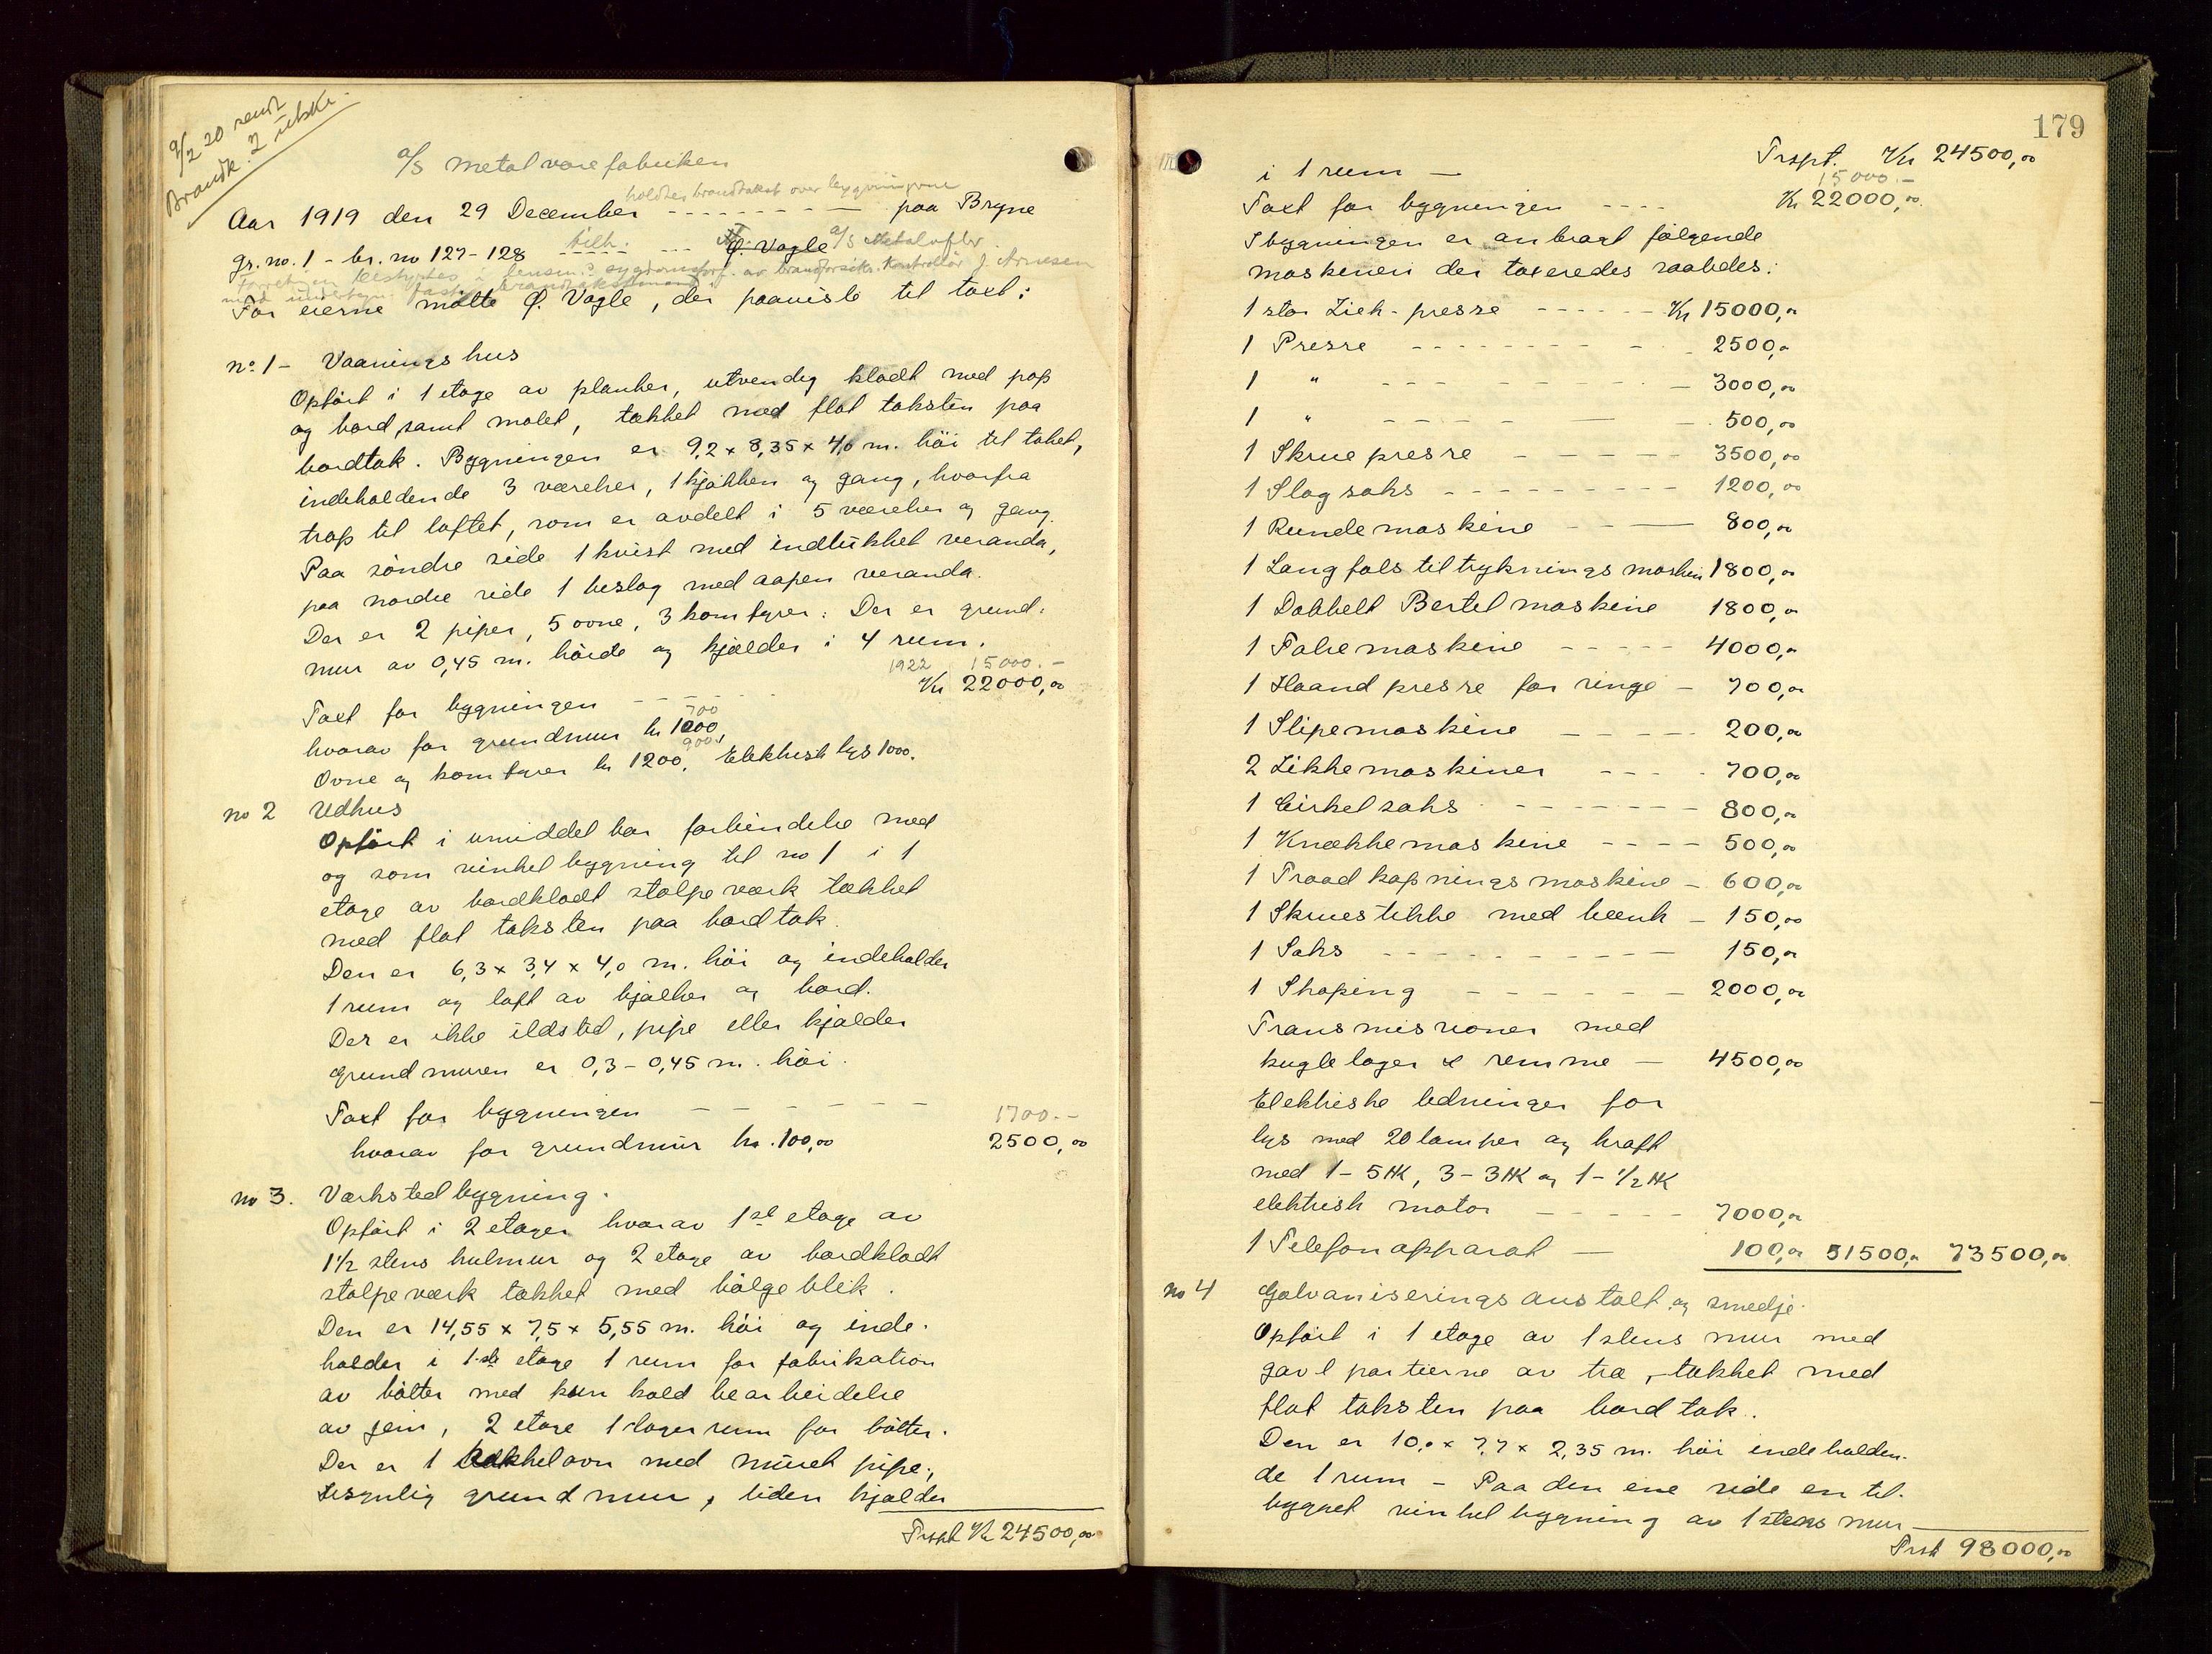 9/2 20 sendt
Brandk. 2 utskr.
A/S Metalvarefabriken
holdtes brandtakst over bygningerne
Aar 1919 den 29 December - - - - - - - — paa Bryne
gr. no. 1 - br. no 127-128 tilh. - - - Ø. Vagle A/S Metal
av brandforsikr. Kontrollör J. Arnesen
For eierne mötte Ø. Vagle, der paaviste til taxt:
no. 1 - Vaaningshus
Opfört i 1 etage av planker, utvendig klædt med pap
og bord samt malet, tækket med flat taksten paa
bordtak. Bygningen er 9,2 x 8,35 x 4,0 m. höi til taket,
indeholdende 3 værelser, 1 kjökken og gang, hvorfra
trap til loftet, som er avdelt i 5 værelser og gang.
Paa söndre side 1 kvist med indlukket veranda,
paa nordre side 1 beslag med aapen veranda.
Der er 2 piper, 5 ovne, 3 komfyrer. Der er grund-
mur av 0,45 m. höide og kjælder i 4 rum.
1922 15000.-
Taxt for bygningen - - - - Kr 22000,00
700
hvorav for grundmur kr 1000,
900.
Ovne og komfyrer kr 1200. Elektrisk lys 1000.
no 2 Udhus
Opfört i umiddelbar forbindelse med
og som vinkelbygning til no 1 i 1
etage av bordklædt stolpeværk tækket
med flat taksten paa bordtak.
Den er 6,3 x 3,4 x 4,0 m. höi og indeholder
1 rum og loft av bjælker og bord.
Der er ikke ildsted, pipe eller kjælder
Grundmuren er 0,3 - 0,45 m. höi.
Taxt for bygningen - - - - - - 1700.-
hvorav for grundmur kr. 100,00 2500,00
no 3. Værkstedbygning.
Opfört i 2 etager hvorav 1ste etage av
1½ stens hulmur og 2 etage av bordklædt
stolpeværk tækket med bölgeblik.
Den er 14,55 x 7,5 x 5,55 m. höi og inde-
holder i 1ste etage 1 rum for fabrikation
av bölter med kun kold bearbeidelse
av jern, 2 etage 1 lagerrum for bölter.
Der er 1 kakkelovn med muret pipe,
usynlig grundmur, liden kjælder
Trspt Kr 24500,00
179
Trspt. Kr 24500,00
i 1 rum —
15000.-
Taxt for bygningen - - - - Kr 22000,00
I bygningen er anbragt fölgende
maskineri der taxeredes saaledes:
1 stor Zieh-presse - - - - - Kr 15000,00
1 Presse - - - - - - - - - 2500,00
1 " - - - - - - - - 3000,00
1 " - - - - - — - 500,00
1 Skruepresse - - - - - 3500,00
1 Slagsaks - - - - - - - - - 1200,00
1 Rundemaskine - - — 800,00
1 Langfals tiltrykningsmaskin 1800,00
1 Dobbelt Bertelmaskine 1800,00
1 Falsemaskine - - - - - 4000,00
1 Haandpresse for ringe - 700,00
1 Slipemaskine - - - - - 200,00
2 Zikkemaskiner - - - - 700,00
1 Cirkelsaks - - - - - - - 800,00
1 Knækkemaskine - - - - 500,00
1 Traadkapningsmaskine - 600,00
1 Skruestikke med bænk - 150,00
1 Saks - - - - - - - - - - 150,00
1 Shaping - - - - - - 2000,00
Transmissioner med
kuglelager & remme — 4500,00
Elektriske ledninger for
lys med 20 lamper og kraft
med 1 - 5 HK, 3 - 3 HK og 1 - ½ HK
elektrisk motor - - - - - 7000,00
1 Telefonapparat — 100,00 51500,00 73500,00
no 4 Galvaniseringsanstalt og smedje.
Opfört i 1 etage av 1 stens mur med
gavlpartierne av træ, tækket med
flat taksten paa bordtak.
Den er 10,0 x 7,7 x 2,35 m. höi indeholden-
de 1 rum - Paa den ene side en til-
bygget vinkelbygning av 1 stens mur
Trspt 98000,00